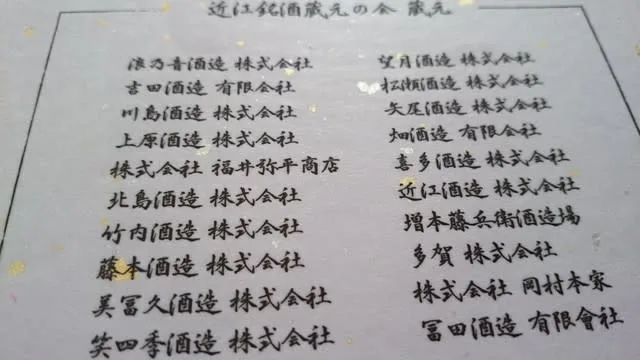 近江銘酒蔵元の会 蔵元
浪乃音酒造 株式会社
吉田酒造 有限会社
川島酒造 株式会社
上原酒造 株式会社
株式会社 福井弥平商店
北島酒造 株式会社
竹内酒造 株式会社
藤本酒造 株式会社
美冨久酒造 株式会社
笑四季酒造 株式会社
望月酒造 株式会社
松瀬酒造 株式会社
矢尾酒造 株式会社
畑酒造 有限会社
喜多酒造 株式会社
近江酒造 株式会社
増本藤兵衛酒造場
多賀 株式会社
株式会社 岡村本家
冨田酒造 有限會社